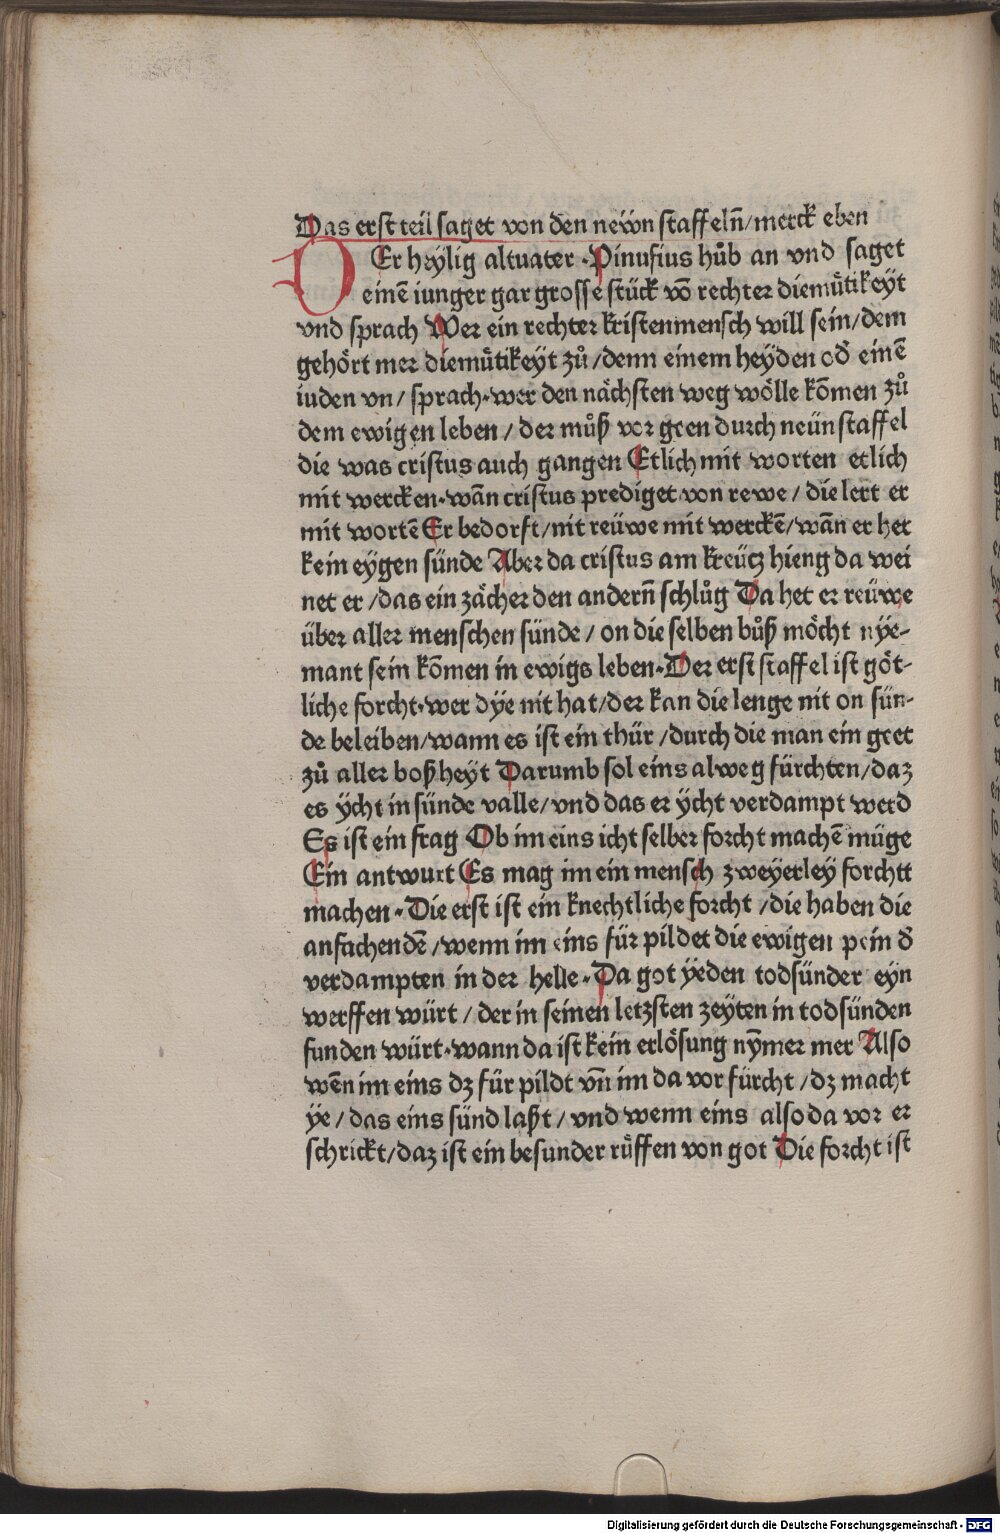 Das erst teil saget von den newn staffeln̄/merck eben
DEr heylig altuater ·Pinufius hůb an vnd saget
einē iunger gar grosse stück vō rechter diemůtikeyt
vnd sprach Wer ein rechter kristenmensch will sein/dem
gehört mer diemůtikeyt zů/denn einem heyden od̄ einē
iuden vn/ sprach·wer den nächsten weg wölle kōmen zů
dem ewigen leben/der můß vor geen durch neün staffel
die was cristus auch gangen Etlich mit worten etlich
mit wercken·wān cristus prediget von rewe/die lert er
mit wortē Er bedorft/nit reüwe mit werckē/wān er het
kein eygen sünde Aber da cristus am kreütz hieng da wei
net er/das ein zächer den andern̄ schlůg Da het er reüwe
über aller menschen sünde/on die selben bůß möcht nÿe-
mant sein kōmen in ewigs leben·Der erst staffel ist göt-
liche forcht·wer dÿe nit hat/der kan die lenge nit on sün-
de beleiben/wann es ist ein thür/durch die man ein geet
zů aller boßheyt Darumb sol eins alweg fürchten/daz
es ÿcht in sünde valle/vnd das er ÿcht verdampt werd
Es ist ein frag Ob im eins icht selber forcht machē müge
Ein antwurt Es mag im ein mensch zweyerley forchtt
machen·Die erst ist ein knechtliche forcht/die haben die
anfachendē/wenn im eins für pildet die ewigen pein d̄
verdampten in der helle·Da got ÿeden todsünder eyn
werffen würt/der in seinen letzsten zeÿten in todsünden
funden würt·wann da ist kein erlösung nȳmer mer Also
wēn im eins dz für pildt vn̄ im da vor fürcht/dz macht
ÿe/das eins sünd laßt/vnd wenn eins also da vor er
schrickt/daz ist ein besunder růffen von got Die forcht ist
Digitalisierung gefördert durch die Deutsche Forschungsgemeinschaft - DFG